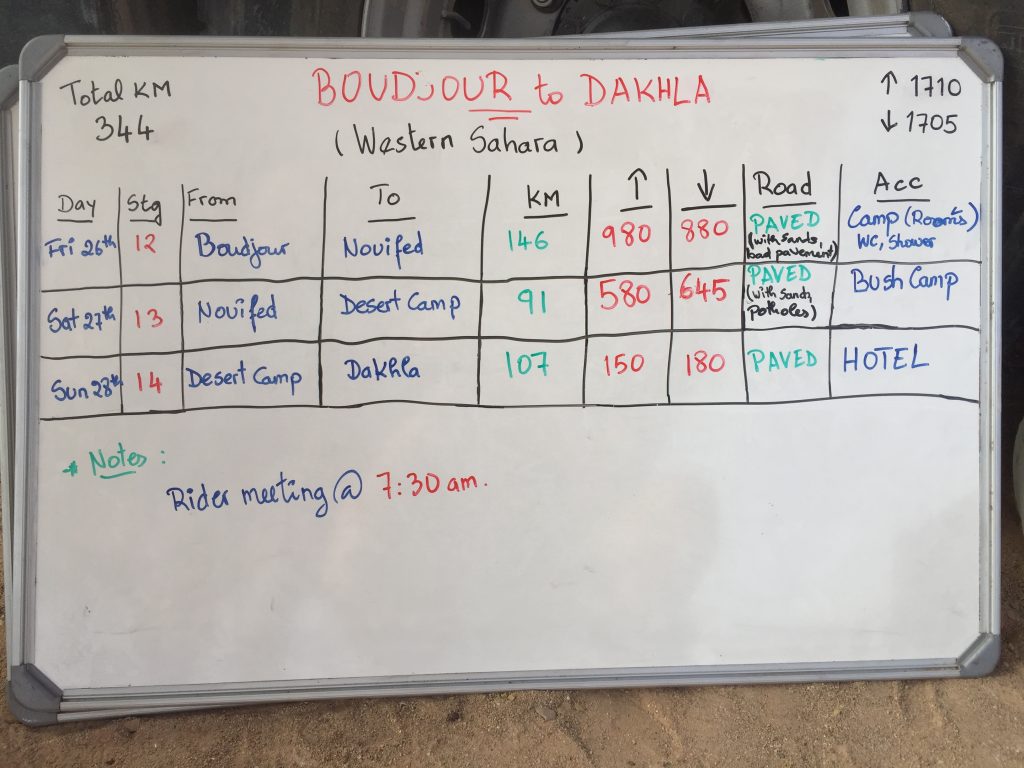 Total KM
344
BOUDJOUR to DAKHLA
(Western Sahara)
↑ 1710
↓ 1705
Day Stg From To KM ↑ ↓ Road Acc
Fri 26th 12 Boudjour Nouifed 146 980 880 PAVED (with sands, bad pavement) Camp (Rooms) WC, Shower
Sat 27th 13 Nouifed Desert Camp 91 580 645 PAVED (with sand, potholes) Bush Camp
Sun 28th 14 Desert Camp Dakhla 107 150 180 PAVED HOTEL
* Notes :
Rider meeting @ 7:30 am.